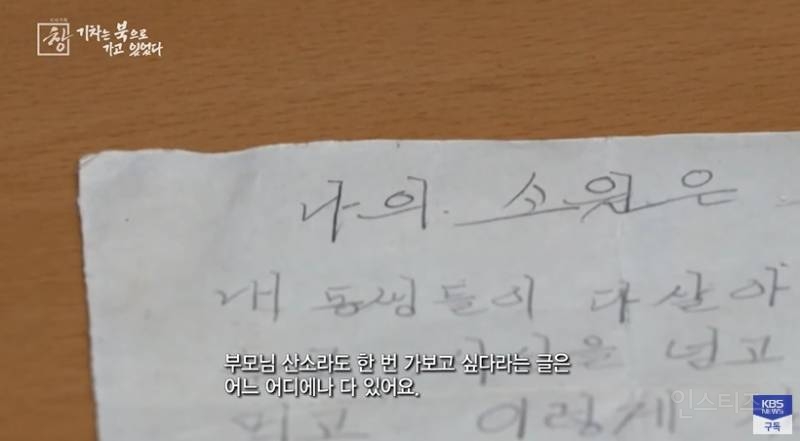 시사기획
창 기차는 북으로
가고 있었다
나의 소원은
내 동생들이 다 살아
을 넘고
부모님 산소라도 한 번 가보고 싶다라는 글은
어느 어디에나 다 있어요.
이렇게
인스티즈
KBS
NEWS
구독